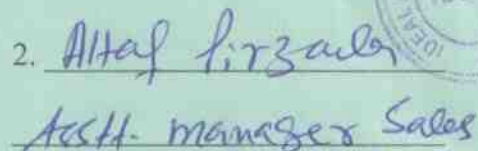 IDEAL
2. Altaf Pirzada
Asstt. manager Sales